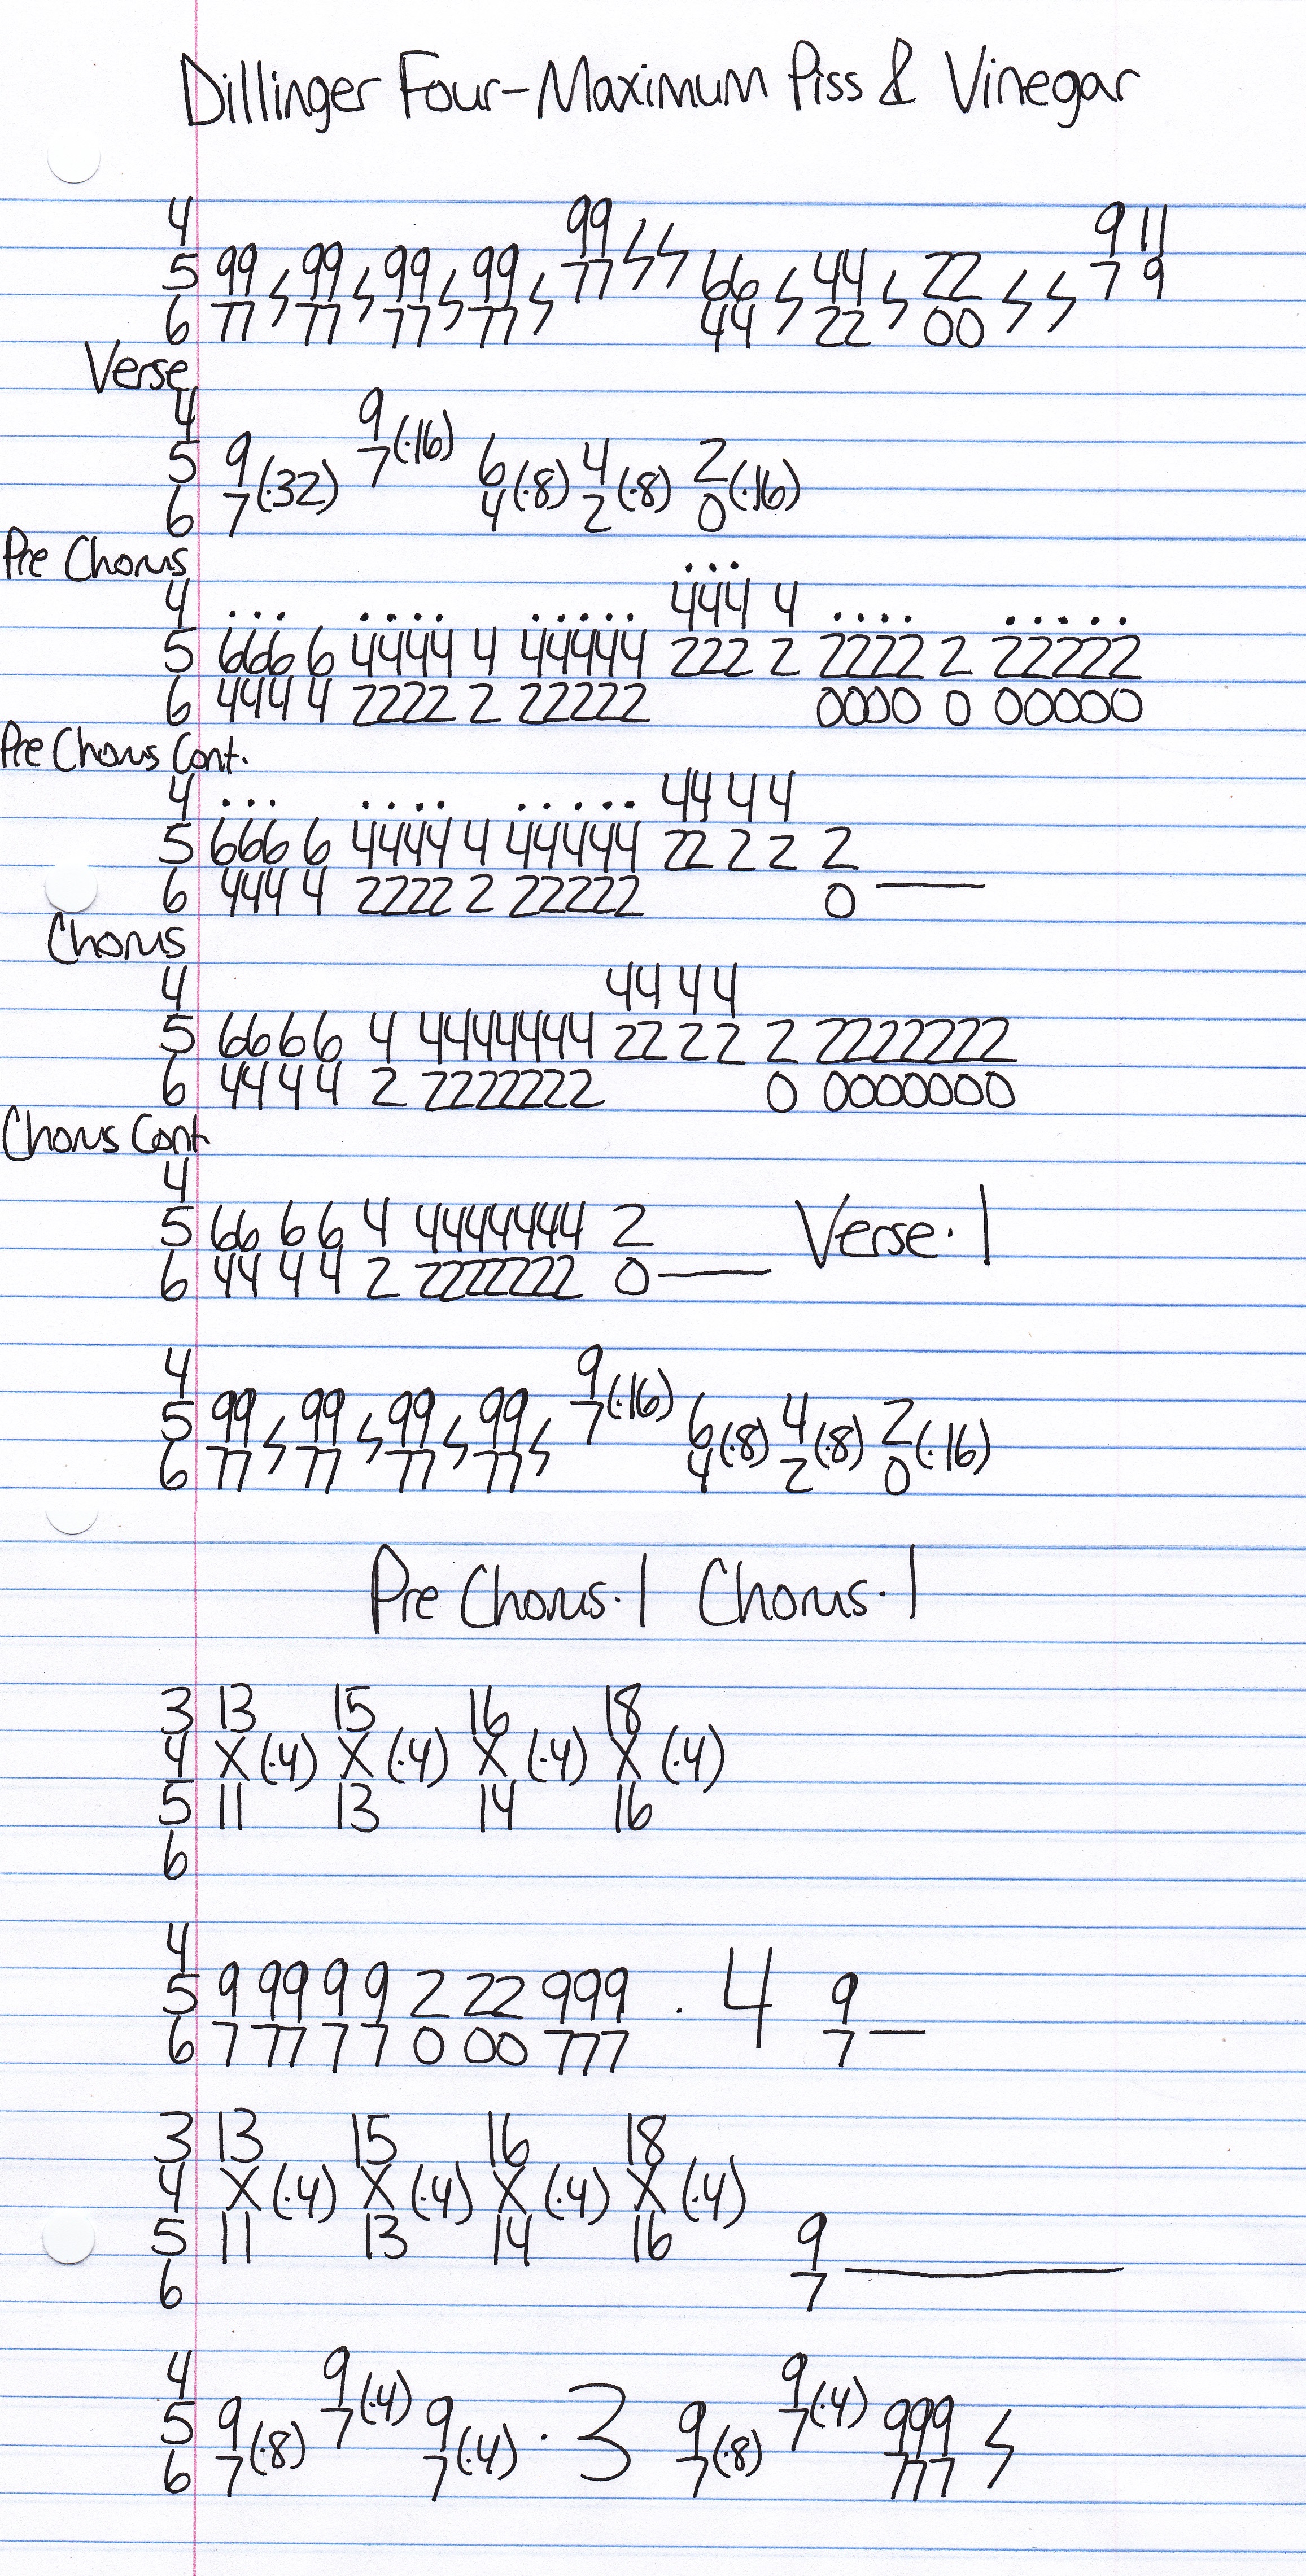 Dillinger Four-Maximum Piss & Vinegar
4 99 9 11
5 99 99 99 99 77 66 44 22 7 9
6 77 77 77 77 44 22 00
Verse
4 9
5 9 7(·16) 6 4 2
6 7(·32) 4(·8) 2(·8) 0(·16)
Pre Chorus
4 ... .... ..... 444 4 .... .....
5 666 6 4444 4 44444 222 2 2222 2 22222
6 444 4 2222 2 22222 0000 0 00000
Pre Chorus Cont.
4 ... .... ..... 44 4 4
5 666 6 4444 4 44444 22 2 2 2
6 444 4 2222 2 22222 0 —
Chorus
4 44 4 4
5 66 6 6 4 4444444 22 2 2 2 2222222
6 44 4 4 2 2222222 0 0000000
Chorus Cont
4
5 66 6 6 4 4444444 2 Verse·1
6 44 4 4 2 2222222 0 —
4 9
5 99 99 99 99 7(·16) 6 4 2
6 77 77 77 77 4(·8) 2(·8) 0(·16)
Pre Chorus·1 Chorus·1
3 13 15 16 18
4 X(·4) X(·4) X(·4) X(·4)
5 11 13 14 16
6
4
5 9 99 9 9 2 22 999 · 4 9
6 7 77 7 7 0 00 777 7 —
3 13 15 16 18
4 X(·4) X(·4) X(·4) X(·4)
5 11 13 14 16 9
6 7 —
4 9 9
5 9 7(·4) 9 · 3 9 7(·4) 999
6 7(·8) 7(·4) 7(·8) 777